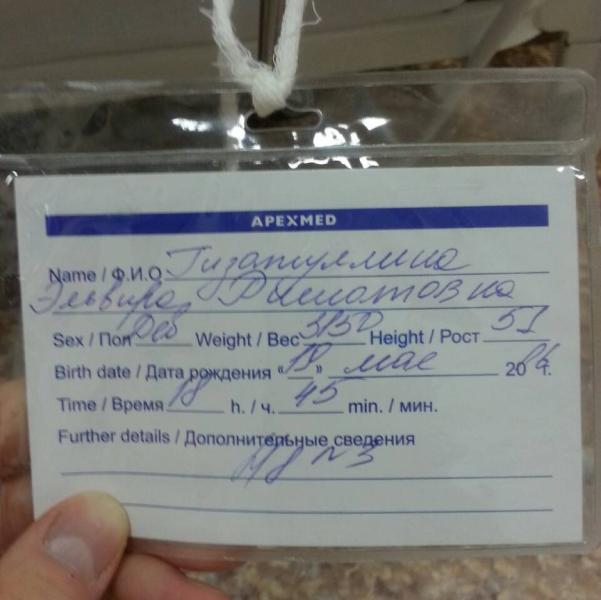 APEXMED
Name / Ф.И.О Гизатуллина
Эльвира
Sex / Пол Дев Weight / Вес 3150 Height / Рост 51
Birth date / Дата рождения « » мая 20 г.
Time / Время 18 h. / ч. 45 min. / мин.
Further details / Дополнительные сведения
№ 3